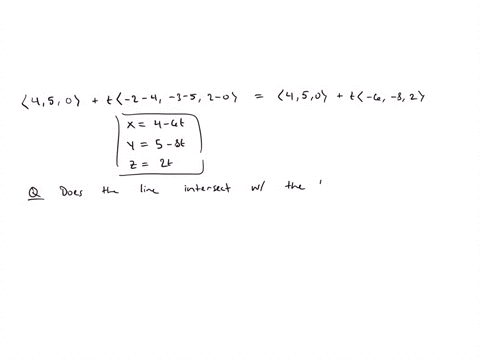 ⟨4,5,0⟩ + t⟨-2-4, -3-5, 2-0⟩ = ⟨4,5,0⟩ + t⟨-6, -8, 2⟩
x = 4-6t
y = 5-8t
z = 2t
Q Does the line intersect w/ the